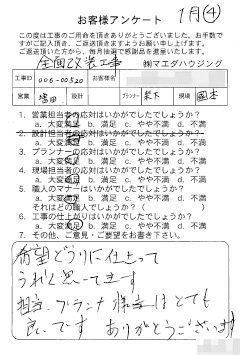 1月④
お客様アンケート
この度は工事のご用命を頂きありがとうございました。お手数で
すがご記入頂き、ご返送頂きますようお願い申し上げます。
ご返送頂いた方から、毎月抽選で感謝品を進呈いたします。
全面改装工事 ㈱マエダハウジング
工事ID 006-00520 お客様名
営業 増田 設計 プランナー 現場 國本
1. 営業担当者の応対はいかがでしたでしょうか?
a. 大変満足 b. 満足 c. やや不満 d. 不満
2. 設計担当者の応対はいかがでしたでしょうか?
a. 大変満足 b. 満足 c. やや不満 d. 不満
3. プランナーの応対はいかがでしたでしょうか?
a. 大変満足 b. 満足 c. やや不満 d. 不満
4. 現場担当者の応対はいかがでしたでしょうか?
a. 大変満足 b. 満足 c. やや不満 d. 不満
5. 職人のマナーはいかがでしたでしょうか?
a. 大変満足 b. 満足 c. やや不満 d. 不満
それはどの職人でしょうか?( )
6. 工事の仕上がりはいかがでしたでしょうか?
a. 大変満足 b. 満足 c. やや不満 d. 不満
7. その他、ご意見・ご要望をお書き下さい。
希望どうりに仕上って
うれしく思ってます
担当、プランナ 様はとても
良いです ありがとうございます